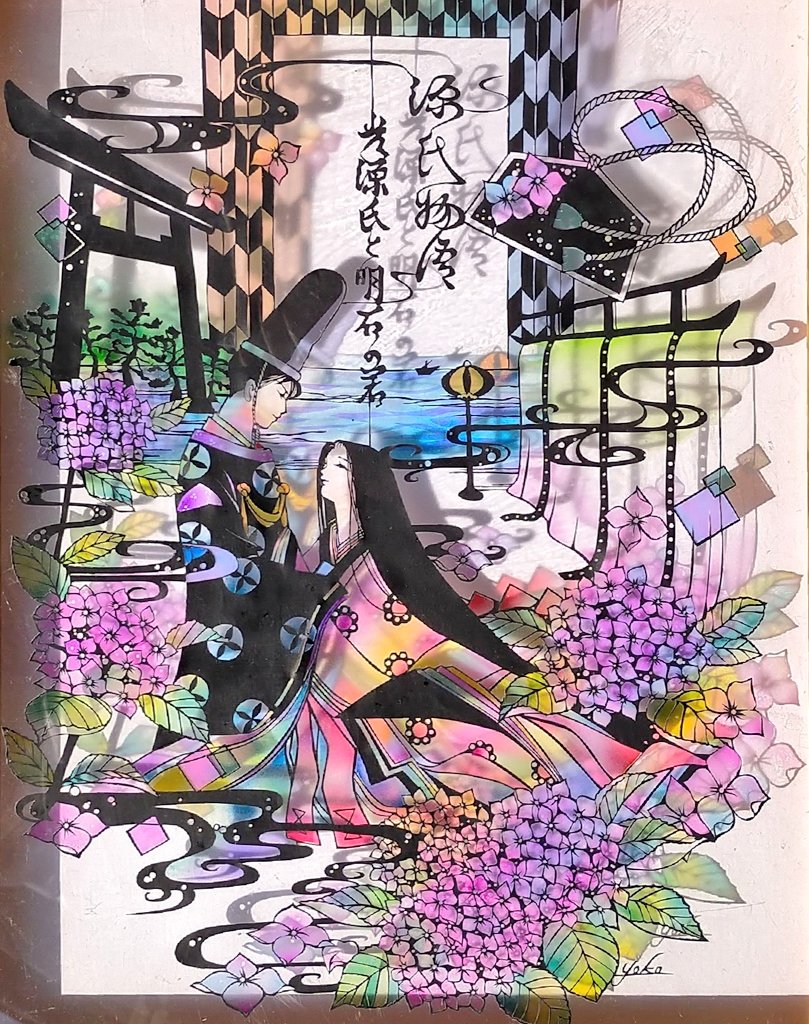 源氏物語
光源氏と明石の君
yoko